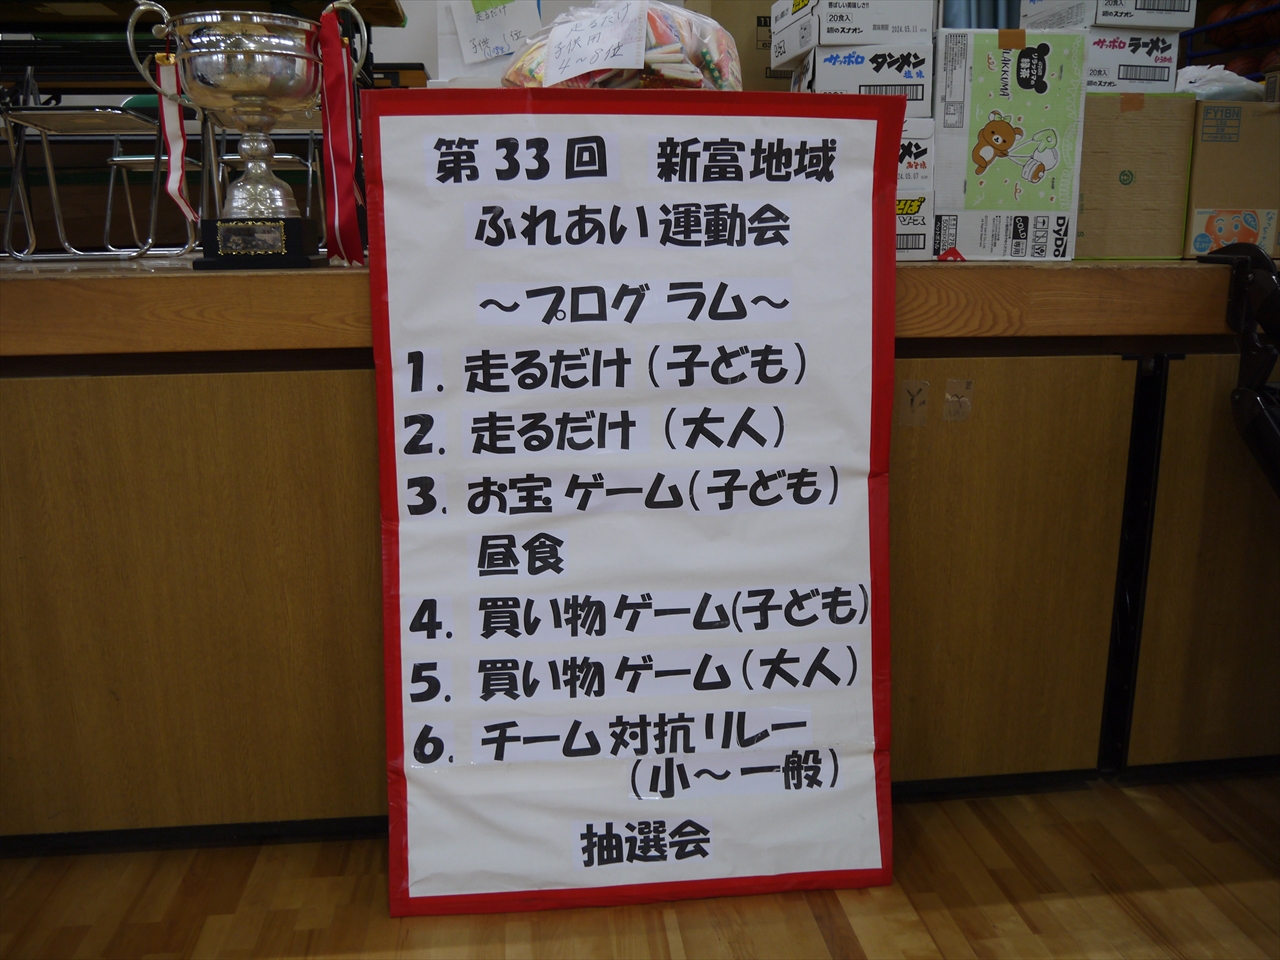 走るだけ
子供 1位
走るだけ
子供用
4～8位
香ばしい美味しさ
20食入
2024.05.11
サッポロ
タンメン
塩味
サッポロ
ラーメン
20食入
FY1BN
DyDo
第33回 新富地域
ふれあい運動会
～プログラム～
1. 走るだけ(子ども)
2. 走るだけ(大人)
3. お宝ゲーム(子ども)
昼食
4. 買い物ゲーム(子ども)
5. 買い物ゲーム(大人)
6. チーム対抗リレー
(小～一般)
抽選会